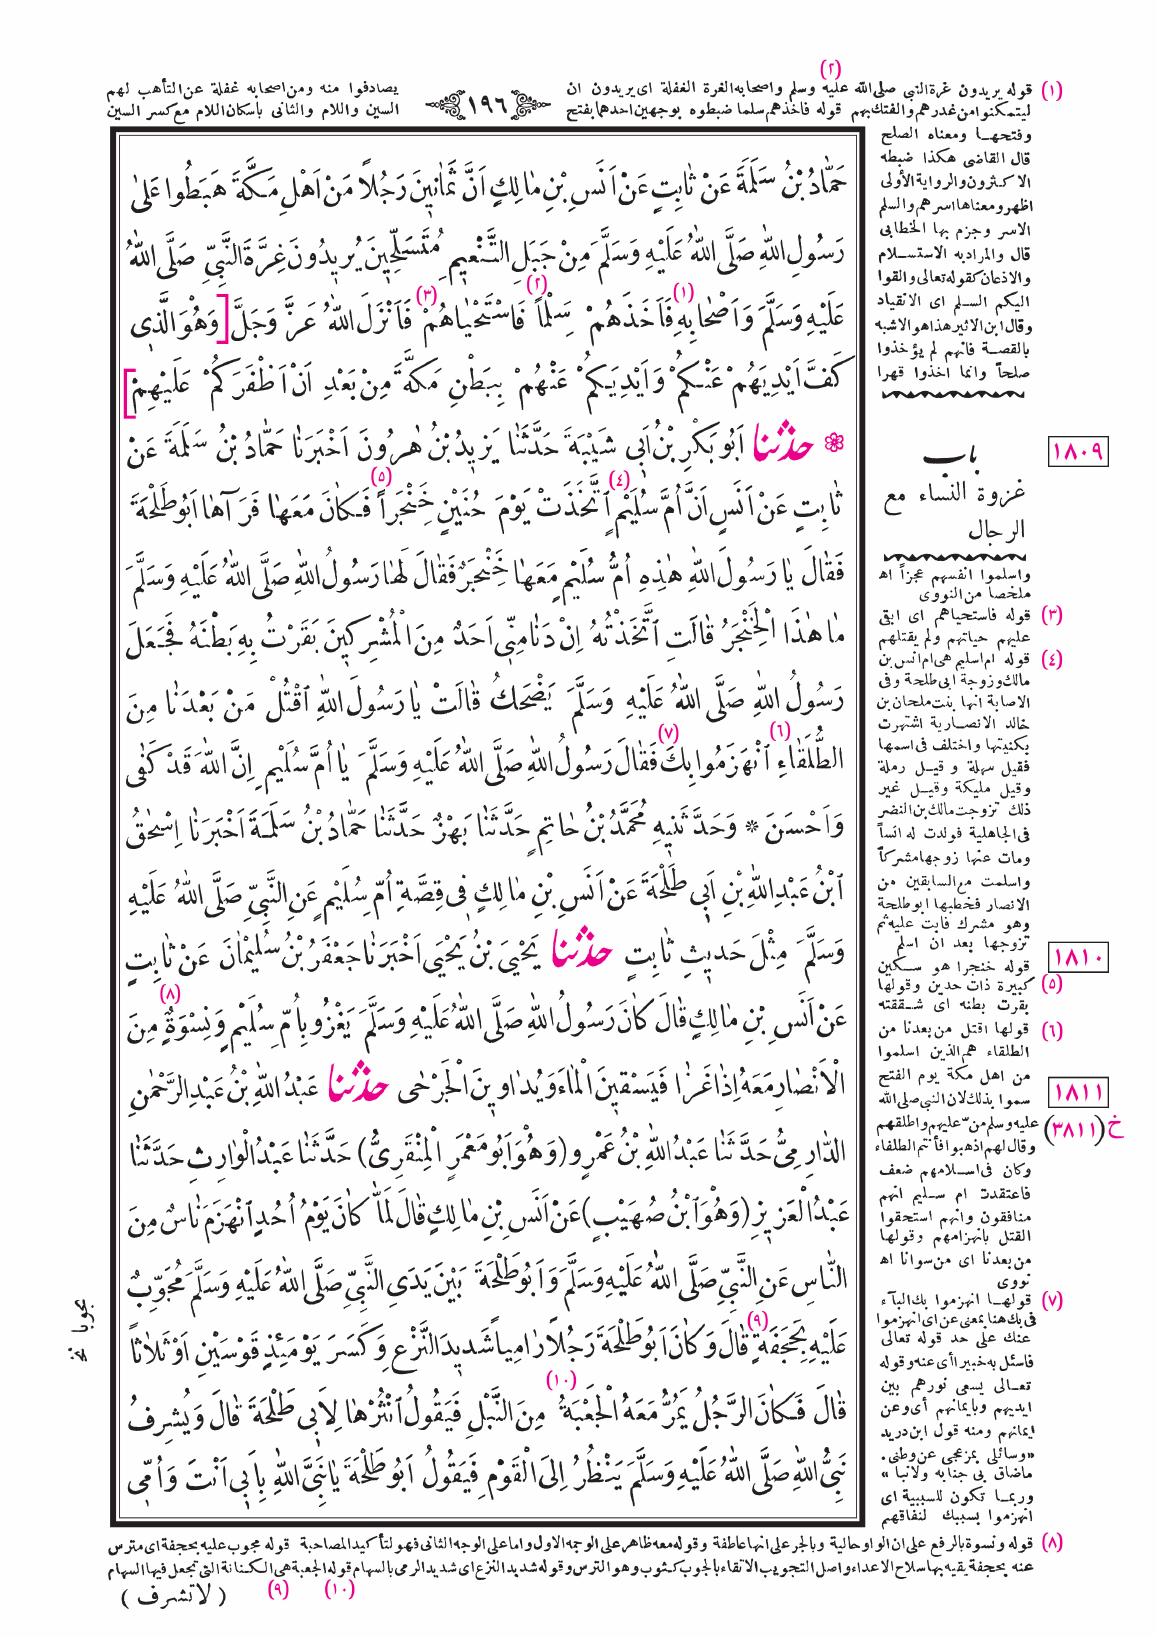 (٢)
(١) قوله يريدون غرة النبي صلى الله عليه وسلم واصحابه الغرة الغفلة اى يريدون ان
ليتمكنوا من غدرهم والفتك بهم قوله فاخذهم سلما ضبطوه بوجهين احدهما بفتح
﴿١٩٦﴾
يصادفوا منه ومن اصحابه غفلة عن التأهب لهم
السين واللام والثانى باسكان اللام مع كسر السين
وفتحها ومعناه الصلح
قال القاضى هكذا ضبطه
الاكثرون والرواية الأولى
اظهر ومعناها اسرهم والسلم
الاسر وجزم بها الخطابى
قال والمراد به الاستسلام
والاذعان كقوله تعالى والقوا
اليكم السلم اى الانقياد
وقال ابن الاثير هذا هو الاشبه
بالقصة فانهم لم يؤخذوا
صلحاً وانما اخذوا قهرا
حَمَّادُ بْنُ سَلَمَةَ عَنْ ثَابِتٍ عَنْ اَنَسِ بْنِ مَالِكٍ اَنَّ ثَمَانِينَ رَجُلاً مَنْ اَهْلِ مَكَّةَ هَبَطُوا عَلَى
رَسُولِ اللهِ صَلَّى اللهُ عَلَيْهِ وَسَلَّمَ مِنْ جَبَلِ التَّنْعِيمِ مُتَسَلِّحِينَ يُرِيدُونَ غِرَّةَ النَّبِيِّ صَلَّى اللهُ
عَلَيْهِ وَسَلَّمَ وَاَصْحَابِهِ فَاَخَذَهُمْ (١) سِلْماً (٢) فَاسْتَحْيَاهُمْ (٣) فَاَنْزَلَ اللهُ عَزَّ وَجَلَّ [وَهُوَ الَّذِى
كَفَّ اَيْدِيَهُمْ عَنْكُمْ وَاَيْدِيَكُمْ عَنْهُمْ بِبَطْنِ مَكَّةَ مِنْ بَعْدِ اَنْ اَظْفَرَكُمْ عَلَيْهِمْ]
❁ حدثنا اَبُو بَكْرِ بْنُ اَبِى شَيْبَةَ حَدَّثَنَا يَزِيدُ بْنُ هٰرُونَ اَخْبَرَنَا حَمَّادُ بْنُ سَلَمَةَ عَنْ
ثَابِتٍ عَنْ اَنَسٍ اَنَّ اُمَّ سُلَيْمٍ (٤) اَتَّخَذَتْ يَوْمَ حُنَيْنٍ خِنْجَراً (٥) فَكَانَ مَعَهَا فَرَآهَا اَبُو طَلْحَةَ
فَقَالَ يَا رَسُولَ اللهِ هٰذِهِ اُمُّ سُلَيْمٍ مَعَهَا خِنْجَرٌ فَقَالَ لَهَا رَسُولُ اللهِ صَلَّى اللهُ عَلَيْهِ وَسَلَّمَ
مَا هٰذَا الْخِنْجَرُ قَالَتِ اتَّخَذْتُهُ اِنْ دَنَا مِنِّى اَحَدٌ مِنَ الْمُشْرِكِينَ بَقَرْتُ بِهِ بَطْنَهُ فَجَعَلَ
رَسُولُ اللهِ صَلَّى اللهُ عَلَيْهِ وَسَلَّمَ يَضْحَكُ قَالَتْ يَا رَسُولَ اللهِ اقْتُلْ مَنْ بَعْدَنَا مِنَ
الطُّلَقَاءِ (٦) انْهَزَمُوا بِكَ (٧) فَقَالَ رَسُولُ اللهِ صَلَّى اللهُ عَلَيْهِ وَسَلَّمَ يَا اُمَّ سُلَيْمٍ اِنَّ اللهَ قَدْ كَفَى
وَاَحْسَنَ * وَحَدَّثَنِيهِ مُحَمَّدُ بْنُ حَاتِمٍ حَدَّثَنَا بَهْزٌ حَدَّثَنَا حَمَّادُ بْنُ سَلَمَةَ اَخْبَرَنَا اِسْحٰقُ
ابْنُ عَبْدِ اللهِ بْنِ اَبِى طَلْحَةَ عَنْ اَنَسِ بْنِ مَالِكٍ فِى قِصَّةِ اُمِّ سُلَيْمٍ عَنِ النَّبِيِّ صَلَّى اللهُ عَلَيْهِ
وَسَلَّمَ مِثْلَ حَدِيثِ ثَابِتٍ حدثنا يَحْيَى بْنُ يَحْيَى اَخْبَرَنَا جَعْفَرُ بْنُ سُلَيْمَانَ عَنْ ثَابِتٍ
عَنْ اَنَسِ بْنِ مَالِكٍ قَالَ كَانَ رَسُولُ اللهِ صَلَّى اللهُ عَلَيْهِ وَسَلَّمَ يَغْزُو بِاُمِّ سُلَيْمٍ وَنِسْوَةٌ (٨) مِنَ
الْاَنْصَارِ مَعَهُ اِذَا غَزَا فَيَسْقِينَ الْمَاءَ وَيُدَاوِينَ الْجَرْحٰى حدثنا عَبْدُ اللهِ بْنُ عَبْدِ الرَّحْمٰنِ
الدَّارِمِىُّ حَدَّثَنَا عَبْدُ اللهِ بْنُ عَمْرٍو (وَهُوَ اَبُو مَعْمَرٍ الْمِنْقَرِىُّ) حَدَّثَنَا عَبْدُ الْوَارِثِ حَدَّثَنَا
عَبْدُ الْعَزِيزِ (وَهُوَ ابْنُ صُهَيْبٍ) عَنْ اَنَسِ بْنِ مَالِكٍ قَالَ لَمَّا كَانَ يَوْمُ اُحُدٍ انْهَزَمَ نَاسٌ مِنَ
النَّاسِ عَنِ النَّبِيِّ صَلَّى اللهُ عَلَيْهِ وَسَلَّمَ وَاَبُو طَلْحَةَ بَيْنَ يَدَىِ النَّبِيِّ صَلَّى اللهُ عَلَيْهِ وَسَلَّمَ مُجَوِّبٌ
عَلَيْهِ بِحَجَفَةٍ (٩) قَالَ وَكَانَ اَبُو طَلْحَةَ رَجُلاً رَامِياً شَدِيدَ النَّزْعِ وَكَسَرَ يَوْمَئِذٍ قَوْسَيْنِ اَوْ ثَلَاثاً
قَالَ فَكَانَ الرَّجُلُ يَمُرُّ مَعَهُ الْجَعْبَةُ (١٠) مِنَ النَّبْلِ فَيَقُولُ انْثُرْهَا لِاَبِى طَلْحَةَ قَالَ وَيُشْرِفُ
نَبِىُّ اللهِ صَلَّى اللهُ عَلَيْهِ وَسَلَّمَ يَنْظُرُ اِلَى الْقَوْمِ فَيَقُولُ اَبُو طَلْحَةَ يَا نَبِىَّ اللهِ بِاَبِى اَنْتَ وَاُمِّى
١٨٠٩
باب
غزوة النساء مع
الرجال
واسلموا انفسهم عجزاً اه
ملخصا من النووى
(٣) قوله فاستحياهم اى ابقى
عليهم حياتهم ولم يقتلهم
(٤) قوله ام سليم هى ام انس بن
مالك وزوجة ابى طلحة وفى
الاصابة انها بنت ملحان بن
خالد الانصارية اشتهرت
بكنيتها واختلف فى اسمها
فقيل سهلة وقيل رملة
وقيل مليكة وقيل غير
ذلك تزوجت مالك بن النضر
فى الجاهلية فولدت له انساً
ومات عنها زوجها مشركاً
واسلمت مع السابقين من
الانصار فخطبها ابو طلحة
وهو مشرك فابت عليه ثم
تزوجها بعد ان اسلم
١٨١٠
قوله خنجرا هو سكين
(٥) كبيرة ذات حدين وقولها
بقرت بطنه اى شققته
(٦) قولها اقتل من بعدنا من
الطلقاء هم الذين اسلموا
من اهل مكة يوم الفتح
١٨١١
سموا بذلك لان النبى صلى الله
خ (٣٨١١) عليه وسلم منّ عليهم واطلقهم
وقال لهم اذهبوا فأنتم الطلقاء
وكان فى اسلامهم ضعف
فاعتقدت ام سليم انهم
منافقون وانهم استحقوا
القتل بانهزامهم وقولها
من بعدنا اى من سوانا اه
نووى
(٧) قولها انهزموا بك الباء
فى بك هنا بمعنى عن اى انهزموا
عنك على حد قوله تعالى
فاسئل به خبيرا أى عنه وقوله
تعالى يسعى نورهم بين
ايديهم وبايمانهم أى وعن
ايمانهم ومنه قول ابن دريد
«وسائلى بمزعجى عن وطنى.
ماضاق بى جنابه ولانبا»
وربما تكون للسببية اى
انهزموا بسببك لنفاقهم
مجوبا نخ
(٨) قوله ونسوة بالرفع على ان الواو حالية وبالجر على انها عاطفة وقوله معه ظاهر على الوجه الاول واما على الوجه الثانى فهو لتأكيد المصاحبة قوله مجوب عليه بحجفة اى مترس
عنه بحجفة يقيه بها سلاح الاعداء واصل التجويب الاتقاء بالجوب كثوب وهو الترس وقوله شديد النزع اى شديد الرمى بالسهام قوله الجعبة هى الكنانة التى تجعل فيها السهام
(١٠) (٩) (لا تشرف)